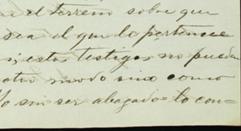 el terreno sobre que
sea el que le pertenece
i estos testigos no pueden
otro modo sino como
lo sin ser abogado lo con-